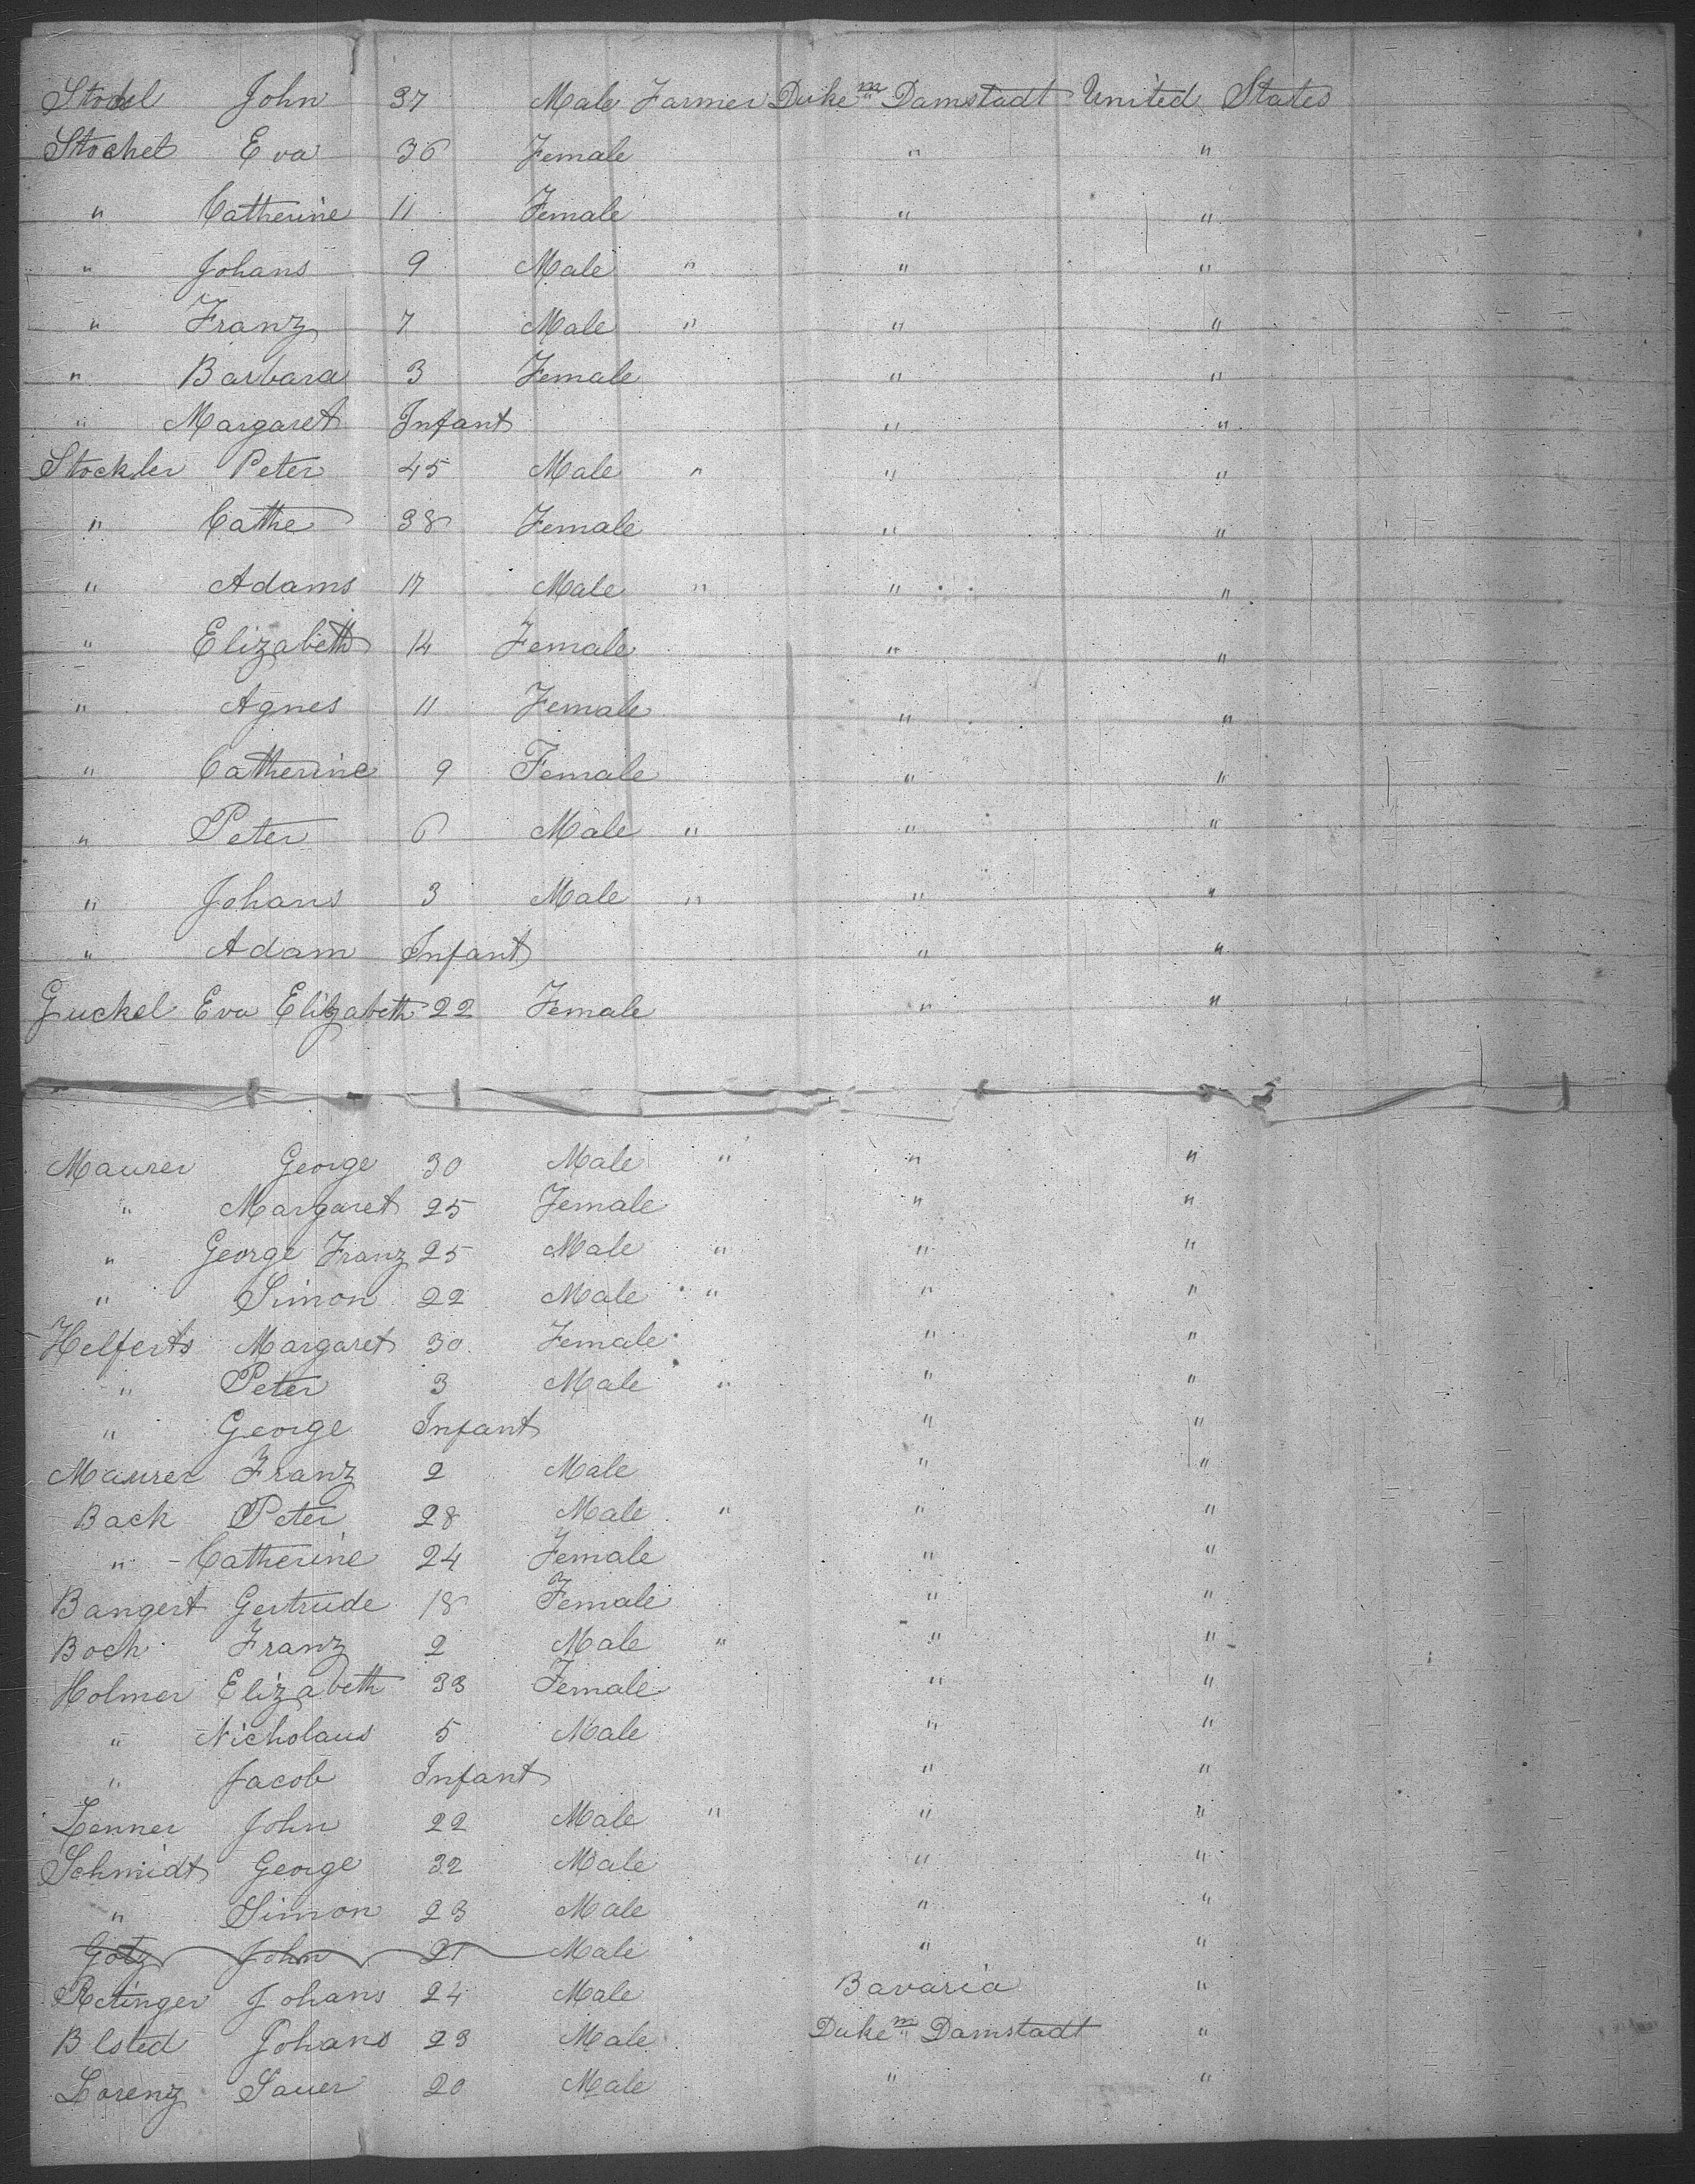 Stockel John 37 Male Farmer Duke m Damstadt United States
Stockel Eva 36 Female " "
" Catherine 11 Female " "
" Johans 9 Male " " "
" Franz 7 Male " " "
" Barbara 3 Female " "
" Margaret Infant " "
Stockler Peter 45 Male " " "
" Cathe 38 Female " "
" Adams 17 Male " " "
" Elizabeth 14 Female " "
" Agnes 11 Female " "
" Catherine 9 Female " "
" Peter 6 Male " " "
" Johans 3 Male " " "
" Adam Infant " "
Guckel Eva Elizabeth 22 Female " "
Maurer George 30 Male " " "
" Margaret 25 Female " "
" George Franz 25 Male " " "
" Simon 22 Male " " "
Helferts Margaret 30 Female " "
" Peter 3 Male " " "
" George Infant " "
Maurer Franz 2 Male " "
Back Peter 28 Male " " "
" Catherine 24 Female " "
Bangert Gertrude 18 Female " "
Boch Franz 2 Male " " "
Holmer Elizabeth 33 Female " "
" Nicholaus 5 Male " "
" Jacob Infant " "
Lenner John 22 Male " " "
Schmidt George 32 Male " "
" Simon 23 Male " "
Götz John 21 Male " "
Johans 24 Male Bavaria "
Blsted Johans 23 Male Duke m Damstadt "
Lorenz Sauer 20 Male " "